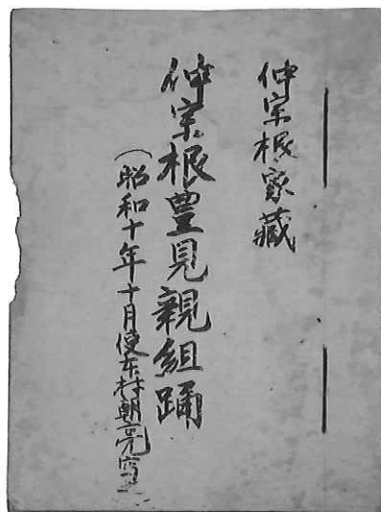 仲宗根家蔵
仲宗根豊見親組踊
(昭和十年十月使東村朝亮写之